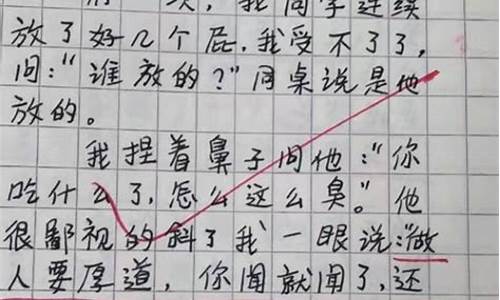 有一次，我同学连续
放了好几个屁.我受不了了，
问："谁放的？"同桌说是他
放的。
我捏着鼻子问他："你
吃什么了，怎么这么臭。"他
很鄙视的斜了我一眼说："做
人要厚道，你闻就闻了，还